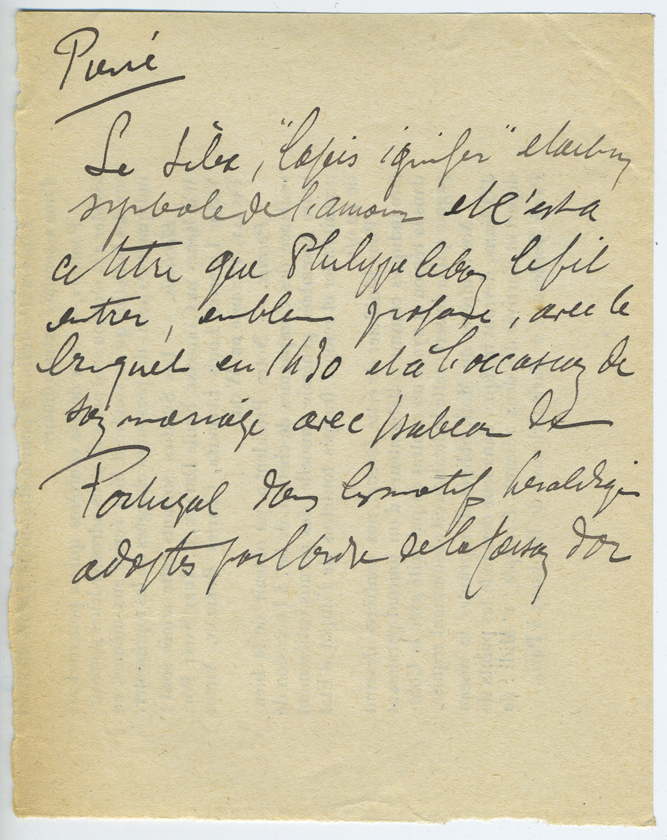 Pierre
Le silex, "lapis ignifer" était un
symbole de l'amour et c'est à
ce titre que Philippe le bon le fit
entrer, emblème profane, avec le
briquet en 1430 et à l'occasion de
son mariage avec Isabeau de
Portugal dans les motifs héraldiques
adoptés par l'ordre de la Toison d'or